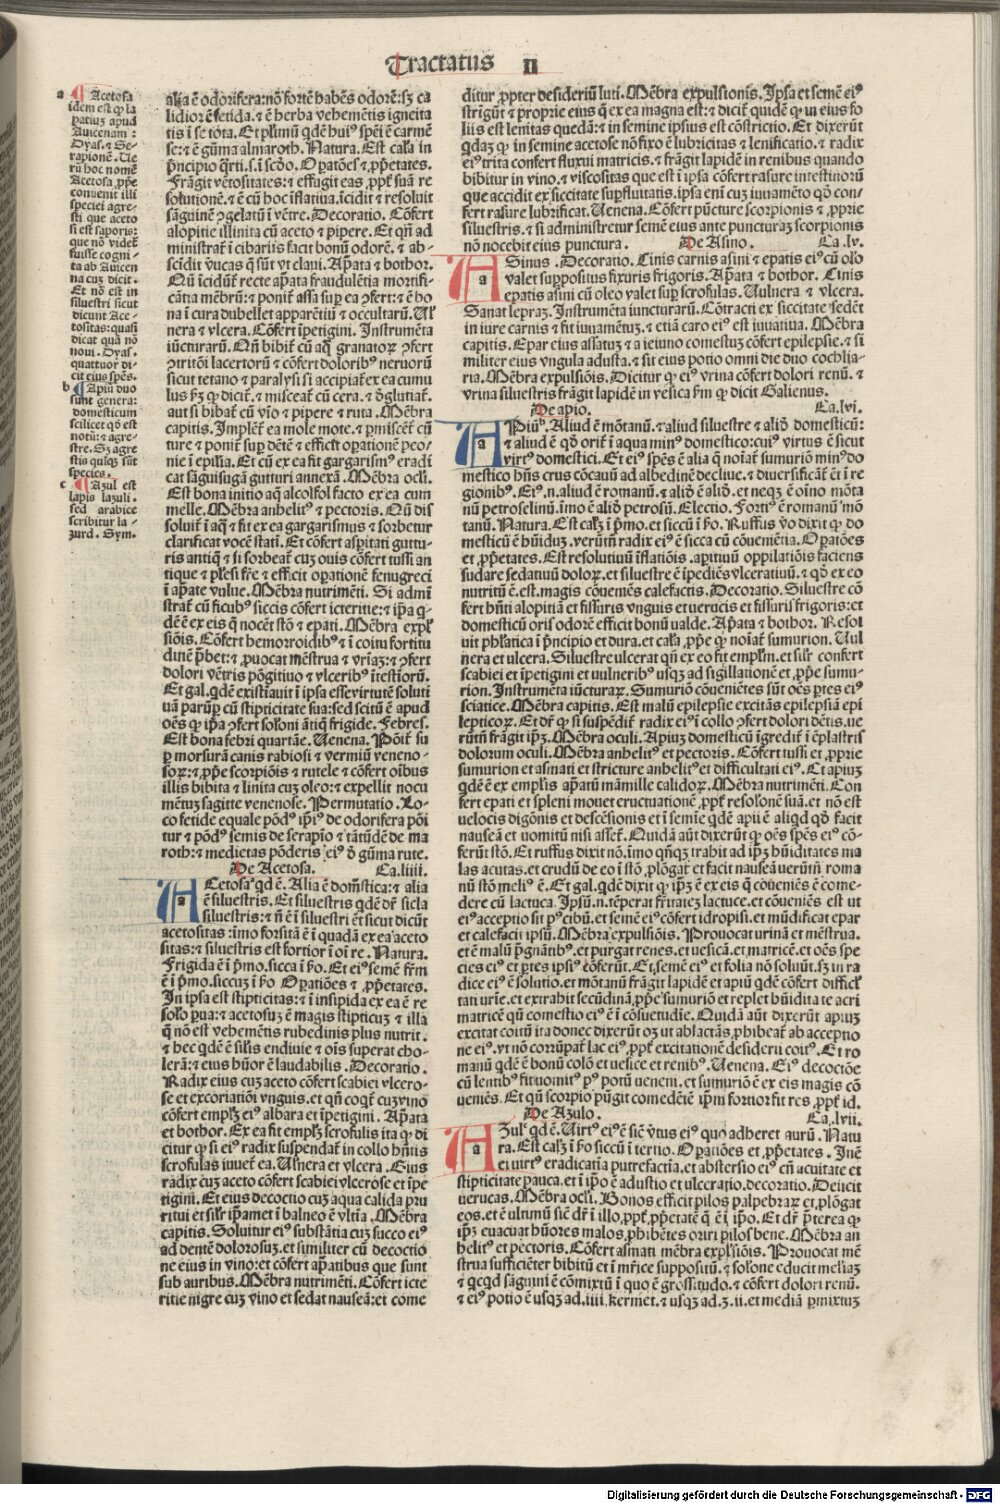 Tractatus II
a ¶ Acetosa
idem est qp la
patiuz apud
Auicenam:
Dyas. ⁊ Se-
rapionē. Ue
rū hoc nomē
Acetosa ꝓpe
conuenit illi
speciei agre-
sti que aceto
si est saporis:
que nō videt
fuisse cogni-
ta ab Auicen
na cuz dicit.
Et nō est in
siluestri sicut
dicunt Ace-
tositas: quasi
dicat quā nō
noui. Dyas.
quattuor di-
cit eius spēs.
b ¶ Apiū duo
sunt genera:
domesticum
scilicet qd est
notū: ⁊ agre-
stre. Sz agre
stis quisqz sūt
species.
c ¶ Azul est
lapis lazuli.
sed arabice
scribitur la-
zurd. Sym.
alia ē odorifera: nō forte habēs odorē: sz ca
lidior ē fetida. ⁊ ē herba vehemētis igneita
tis ī se tota. Et plimū qdē huiꝰ spēi ē carmē
se: ⁊ ē gūma almaroth. Natura. Est calꝫa in
pncipio qrti. s. ī scdo. Opatōes ⁊ ppetates.
Frāgit vētositates: ⁊ effugit eas, ppt suā re
solutionē. ⁊ ē cū hoc īflatiua. īcidit ⁊ resoluit
sāguinē ꝯgelatū ī vētre. Decoratio. Cōfert
alopitie illinita cū aceto ⁊ pipere. Et qn ad
ministrat ī cibariis facit bonū odorē. ⁊ ab-
scidit vucas q sūt vt claui. Apata ⁊ bothor.
Qn īcidūt recte apata fraudulētia mortifi-
cātia mēbrū: ⁊ ponit assa sup ea ꝯfert: ⁊ ē bo
na ī cura dubellet apparētiū ⁊ occultarū. Ul
nera ⁊ vlcera. Cōfert īpetigini. Instrumēta
iūcturarū. Qn bibit cū aq granatoꝝ ꝯfert
ꝯtritōi lacertorū ⁊ cōfert doloribꝰ neruorū
sicut tetano ⁊ paralysi si accipiat ex ea cumu
lus ꝩm qp dicit. ⁊ misceat cū cera. ⁊ dglutiat
aut si bibat cū vīo ⁊ pipere ⁊ ruta. Mēbra
capitis. Implet ea mole mote. ⁊ pmiscet cū
ture ⁊ ponit sup dētē ⁊ efficit opationē peo-
nie ī epilīa. Et cū ex ea fit gargarismꝰ eradi
cat sāguisugā gutturi annexā. Mēbra ocli.
Est bona initio aq alcolfol facto ex ea cum
melle. Mēbra anhelitꝰ ⁊ pectoris. Qn dis
soluit ī aq ⁊ fit ex ea gargarismus ⁊ sorbetur
clarificat vocē stati. Et cōfert aspitati guttu-
ris antiq ⁊ si sorbeat cuz ouis cōfert tussi an
tique ⁊ plesi fre ⁊ efficit opationē fenugreci
ī apate vulue. Mēbra nutrimēti. Si admī
strat cū ficubꝰ siccis cōfert icteritie: ⁊ ipa q-
dē ē ex eis q nocēt stō ⁊ epati. Mēbra expl
siōis. Cōfert hemorroidibꝰ ⁊ ī coitu fortitu
dinē pbet: ⁊ puocat mēstrua ⁊ vrīaz: ⁊ ꝯfert
dolori vētris pōgitiuo ⁊ vlceribꝰ ītestiorū.
Et gal. qdē existiauit ī ipsa esse virtutē soluti
uā parūp cū stipticitate sua: sed scitū ē apud
oēs qp ipa ꝯfert soloni ātiq frigide. Febres.
Est bona febri quartāe. Uenena. Pōit su
p morsurā canis rabiosi ⁊ vermiū veneno-
soꝝ: ⁊ ppe scorpiōis ⁊ rutele ⁊ cōfert oibus
illis bibita ⁊ linita cuz oleo: ⁊ expellit nocu
mētuz sagitte venenose. Permutatio. Lo-
co fetide equale pōdꝰ ipiꝰ de odorifera pōi
tur ⁊ pōdꝰ semis de serapio ⁊ tātūdē de ma
roth: ⁊ medietas pōderis eiꝰ d gūma rute.
De Acetosa. Ca. liiii.
ACetosa qdē. Alia ē domestica: ⁊ alia
ē siluestris. Et siluestris qdē dr sicla
siluestris: ⁊ n ē ī siluestri ēt sicut dicūt
acetositas: īmo forsitā ē ī quadā ex ea aceto
sitas: ⁊ siluestris est fortior ī oī re. Natura.
Frigida ē ī pmo. sicca ī ꝩo. Et eiꝰ semē frm
ē ī pmo. siccuz ī ꝩo Opatiōes ⁊ ppetates.
In ipsa est stipticitas: ⁊ ī insipida ex ea ē re
solo pua: ⁊ acetosuz ē magis stipticuz ⁊ illa
q nō est vehemētis rubedinis plus nutrit.
⁊ hec qdē ē silis endiuie ⁊ ois superat cho-
lerā: ⁊ eius hūor ē laudabilis. Decoratio.
Radix eius cuz aceto cōfert scabiei vlcero-
se ⁊ excoriatiōi vnguis. et qn coqt cuz vino
cōfert emplꝫ eiꝰ albara et īpetigini. Apata
et bothor. Ex ea fit emplꝫ scrofulis ita qp di
citur qp si eiꝰ radix suspendat in collo hntis
scrofulas iuuet ea. Ulnera et vlcera. Eius
radix cuz aceto cōfert scabiei vlcerose et īpe
tigini. Et eius decoctio cuz aqua calida pru
ritui et silr ipamet ī balneo ē vltia. Mēbra
capitis. Soluitur eiꝰ substātia cuz succo eiꝰ
ad dentē dolorosuz. et similiter cū decoctio
ne eius in vino: et cōfert apatibus que sunt
sub auribus. Mēbra nutrimēti. Cōfert icte
ritie nigre cuz vino et sedat nauseā: et come
ditur ppter desideriū luti. Mēbra expulsionis. Ipsa et semē eiꝰ
strigūt ⁊ proprie eius q ex ea magna est: ⁊ dicit quidē qp in eius fo
liis est lenitas quedā: ⁊ in semine ipsius est cōstrictio. Et dixerūt
qdaz qp in semine acetose nō fixo ē lubricitas ⁊ lenificatio. ⁊ radix
eiꝰ trita confert fluxui matricis. ⁊ frāgit lapidē in renibus quando
bibitur in vino. ⁊ viscositas que est ī ipsa cōfert rasure intestinorū
que accidit ex siccitate supfluitatis. ipsa eni cuz iuuamēto qd con-
fert rasure lubrificat. Uenena. Cōfert pūcture scorpionis ⁊ pprie
siluestris. ⁊ si administretur semē eius ante puncturaz scorpionis
nō nocebit eius punctura. De Asino. Ca. lv.
ASinus. Decoratio. Cinis carnis asini ⁊ epatis eiꝰ cū oleo
valet suppositus fixuris frigoris. Apata ⁊ bothor. Cinis
epatis asini cū oleo valet sup scrofulas. Uulnera ⁊ vlcera.
Sanat lepraz. Instrumēta iuncturarū. Cōtracti ex siccitate sedēt
in iure carnis ⁊ fit iuuamētuz. ⁊ etiā caro eiꝰ est iuuatiua. Mēbra
capitis. Epar eius assatuz ⁊ a ieiuno comestuz cōfert epilepsie. ⁊ si
militer eius vngula adusta. ⁊ sit eius potio omni die duo cochlia-
ria. Mēbra expulsiōis. Dicitur qp eiꝰ vrina cōfert dolori renū. ⁊
vrina siluestris frāgit lapidē in vesica ꝩm qp dicit Galienus.
De apio. Ca. lvi.
APiūb. Aliud ē mōtanū. ⁊ aliud siluestre ⁊ aliō domesticū:
⁊ aliud ē qd orit ī aqua minꝰ domestico: cuiꝰ virtus ē sicut
virtꝰ domestici. Et eiꝰ spēs ē alia q noīat sumuriō minꝰ do
mestico hns crus cōcauū ad albedinē decliue. ⁊ diuersificāt ēt ī re
gionibꝰ. Eiꝰ. n. aliud ē romanū. ⁊ aliō ē aliō. et neqz ē oino mōta
nū petroselinū. īmo ē aliō petrosū. Electio. Fortiꝰ ē romanū mō
tanū. Natura. Est calꝫ ī pmo. et siccū ī ꝩo. Ruffus vo dixit qp do
mesticū ē hūiduz. verūtn radix eiꝰ ē sicca cū cōueniētia. Opatiōes
et ppetates. Est resolutiuū īflatiōis. apitiuū oppilatiōis faciens
sudare sedatiuū doloꝝ. et siluestre ē īpediēs vlceratiuū. ⁊ qd ex eo
nutritū ē. est. magis cōueniēs calefactis. Decoratio. Siluestre cō
fert hnti alopitiā et fissuris vnguis et uerucis et fissuris frigoris: et
domesticū oris odorē efficit bonū ualde. Apata ⁊ bothor. Resol
uit phlatica ī pncipio et dura. et cala, ppe qp noīat sumurion. Uul
nera et ulcera. Siluestre ulcerat qn ex eo fit emplm. et silr confert
scabiei et īpetigini et uulneribꝰ usqz ad sigillationē et, ppe sumu-
rion. Instrumēta iūcturaꝝ. Sumuriō cōueniētes sūt oēs ptes eiꝰ
sciatice. Mēbra capitis. Est malū epilepsie excitās epilepsiā epi
lepticoꝝ. Et dr qp si suspēdit radix eiꝰ ī collo ꝯfert dolori dētis. ue
rūtn frāgit ipꝫ. Mēbra oculi. Apiuz domesticū īgredit ī ēplastris
dolorum oculi. Mēbra anhelitꝰ et pectoris. Cōfert tussi et, pprie
sumurion et asmati et stricture anhelitꝰ et difficultati eiꝰ. Et apiuz
qdē ē ex emplis apatū mamille calidoꝝ. Mēbra nutrimēti. Con
fert epati et spleni mouet eructuationē, ppt resolonē suā. et nō est
uelocis digōnis et descēsionis et ī semīe qdē apii ē aliqd qd facit
nauseā et uomitū nisi asset. Quidā aūt dixerūt qp oēs spēs eiꝰ cō-
ferūt stō. Et ruffus dixit nō. īmo qnqz trahit ad ipꝫ hūiditates ma
las acutas. et crudū de eo ī stō, plōgat et facit nauseā uerūtn roma
nū stō meliꝰ ē. Et gal. qdē dixit qp ipꝫ ē ex eis q cōueniēs ē come-
dere cū lactuca. Ipsū. n. tēperat frītatez lactuce. et cōueniēs est ut
eiꝰ acceptio sit pꝰ cibū. et semē eiꝰ cōfert idropisi. et mūdificat epar
et calefacit ipsū. Mēbra expulsiōis. Prouocat urinā et mēstrua.
et ē malū pgnātibꝰ. et purgat renes. et uesicā. et matricē. et oēs spe
cies eiꝰ et ptes ipsiꝰ cōferūt. Et semē eiꝰ et folia nō soluūt. sꝫ in ra
dice eiꝰ ē solutio. et mōtanū frāgit lapidē et apiū qdē cōfert difficl
tati urīe. et extrahit secūdinā, ppe sumuriō et replet hūidita te acri
matricē qn comestio eiꝰ ē ī cōsuetudīe. Quidā aūt dixerūt apiuz
excitat coitū ita donec dixerūt oꝫ ut ablactās, phibeat ab acceptio
ne eiꝰ. vt nō corrūpat lac eiꝰ, ppt excitationē desiderii coitꝰ. Et ro
manū qdē ē bonū colō et uesice et renibꝰ. Uenena. Eiꝰ decoctōe
cū lentibꝰ fit uomitꝰ pꝰ potū ueneni. et sumuriō ē ex eis magis cō
ueniēs. Et qn scorpio pūgit comedētē ipm fortior fit res, ppt id.
De Azulo. Ca. lvii.
AZulc qd ē. Uirtꝰ eiꝰ ē sic vtus eiꝰ quo adheret aurū. Natu
ra. Est calꝫ ī ꝩo siccū ī tertio. Opatiōes et ppetates. Inē
ei uirtꝰ eradicatīa putrefactīa. et abstersio eiꝰ cū acuitate et
stipticitate pauca. et ī ipo ē adustio et ulceratio. decoratio. Deiicit
uerucas. Mēbra ocli. Bonos efficit pilos palpebraꝝ et, plōgat
eos. et ē ultimū sic dr ī illo, ppt, ppetatē q ē ī ipo. Et dr pterea qp
ipꝫ euacuat hūores malos, phibētes oriri pilos bene. Mēbra an
helitꝰ et pectoris. Cōfert asmati mēbra explsiōis. Prouocat mē
strua sufficiēter bibitū et ī mrīce suppositū. ⁊ solone educit meliaz
⁊ qcqd sāguini ē cōmixtū ī quo ē grossitudo. ⁊ cōfert dolori renū.
⁊ eiꝰ potio ē usqz ad. iiii. kermet. ⁊ usqz ad. ʒ. ii. et mediā pmixtuz
Digitalisierung gefördert durch die Deutsche Forschungsgemeinschaft - DFG